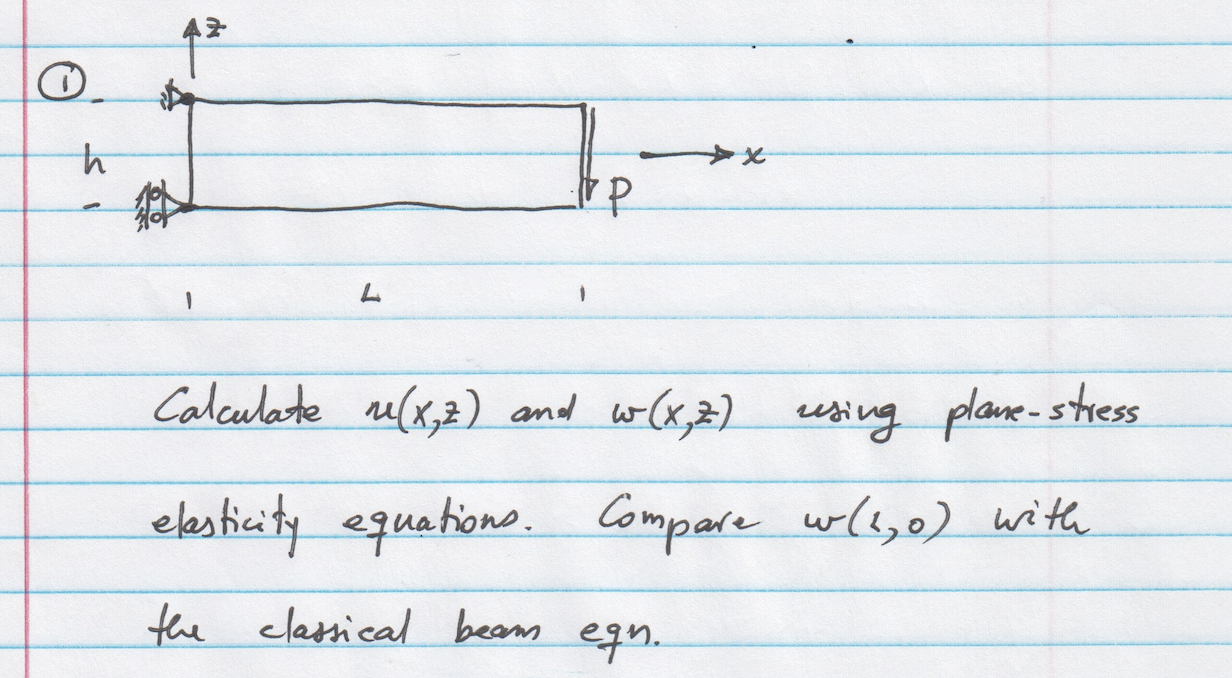 z
①
h
x
P
L
Calculate u(x,z) and w(x,z) using plane-stress
elasticity equations. Compare w(L,0) with
the classical beam eqn.